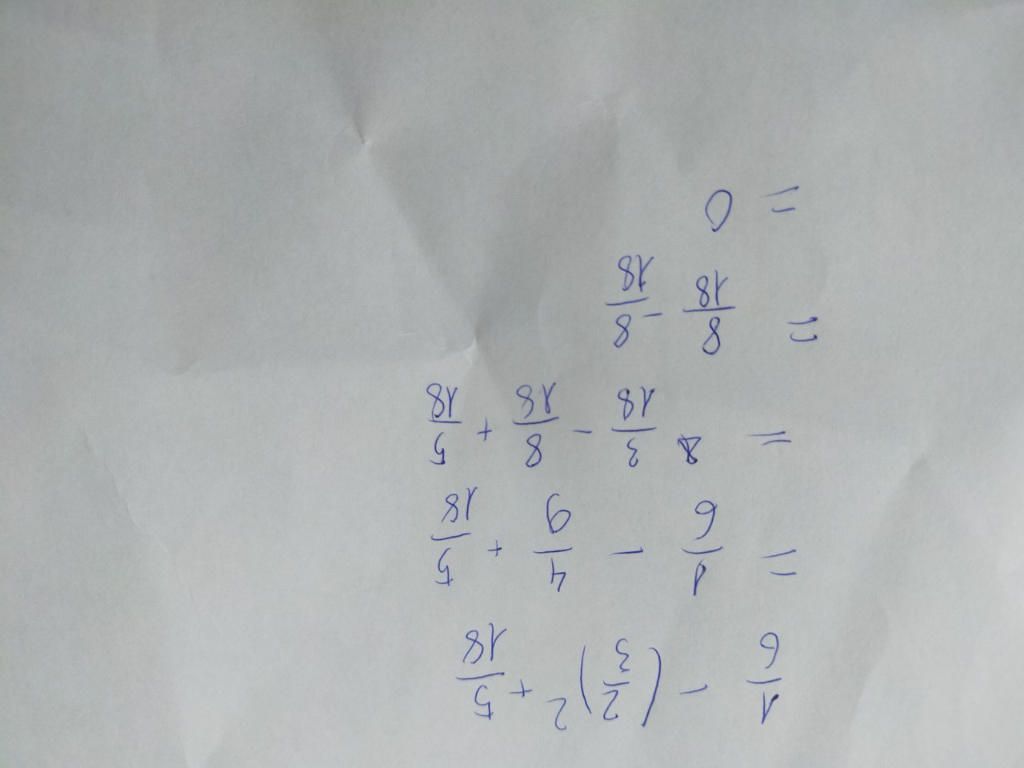 1/6 - (2/3)² + 5/18
= 1/6 - 4/9 + 5/18
= 3/18 - 8/18 + 5/18
= 8/18 - 8/18
= 0